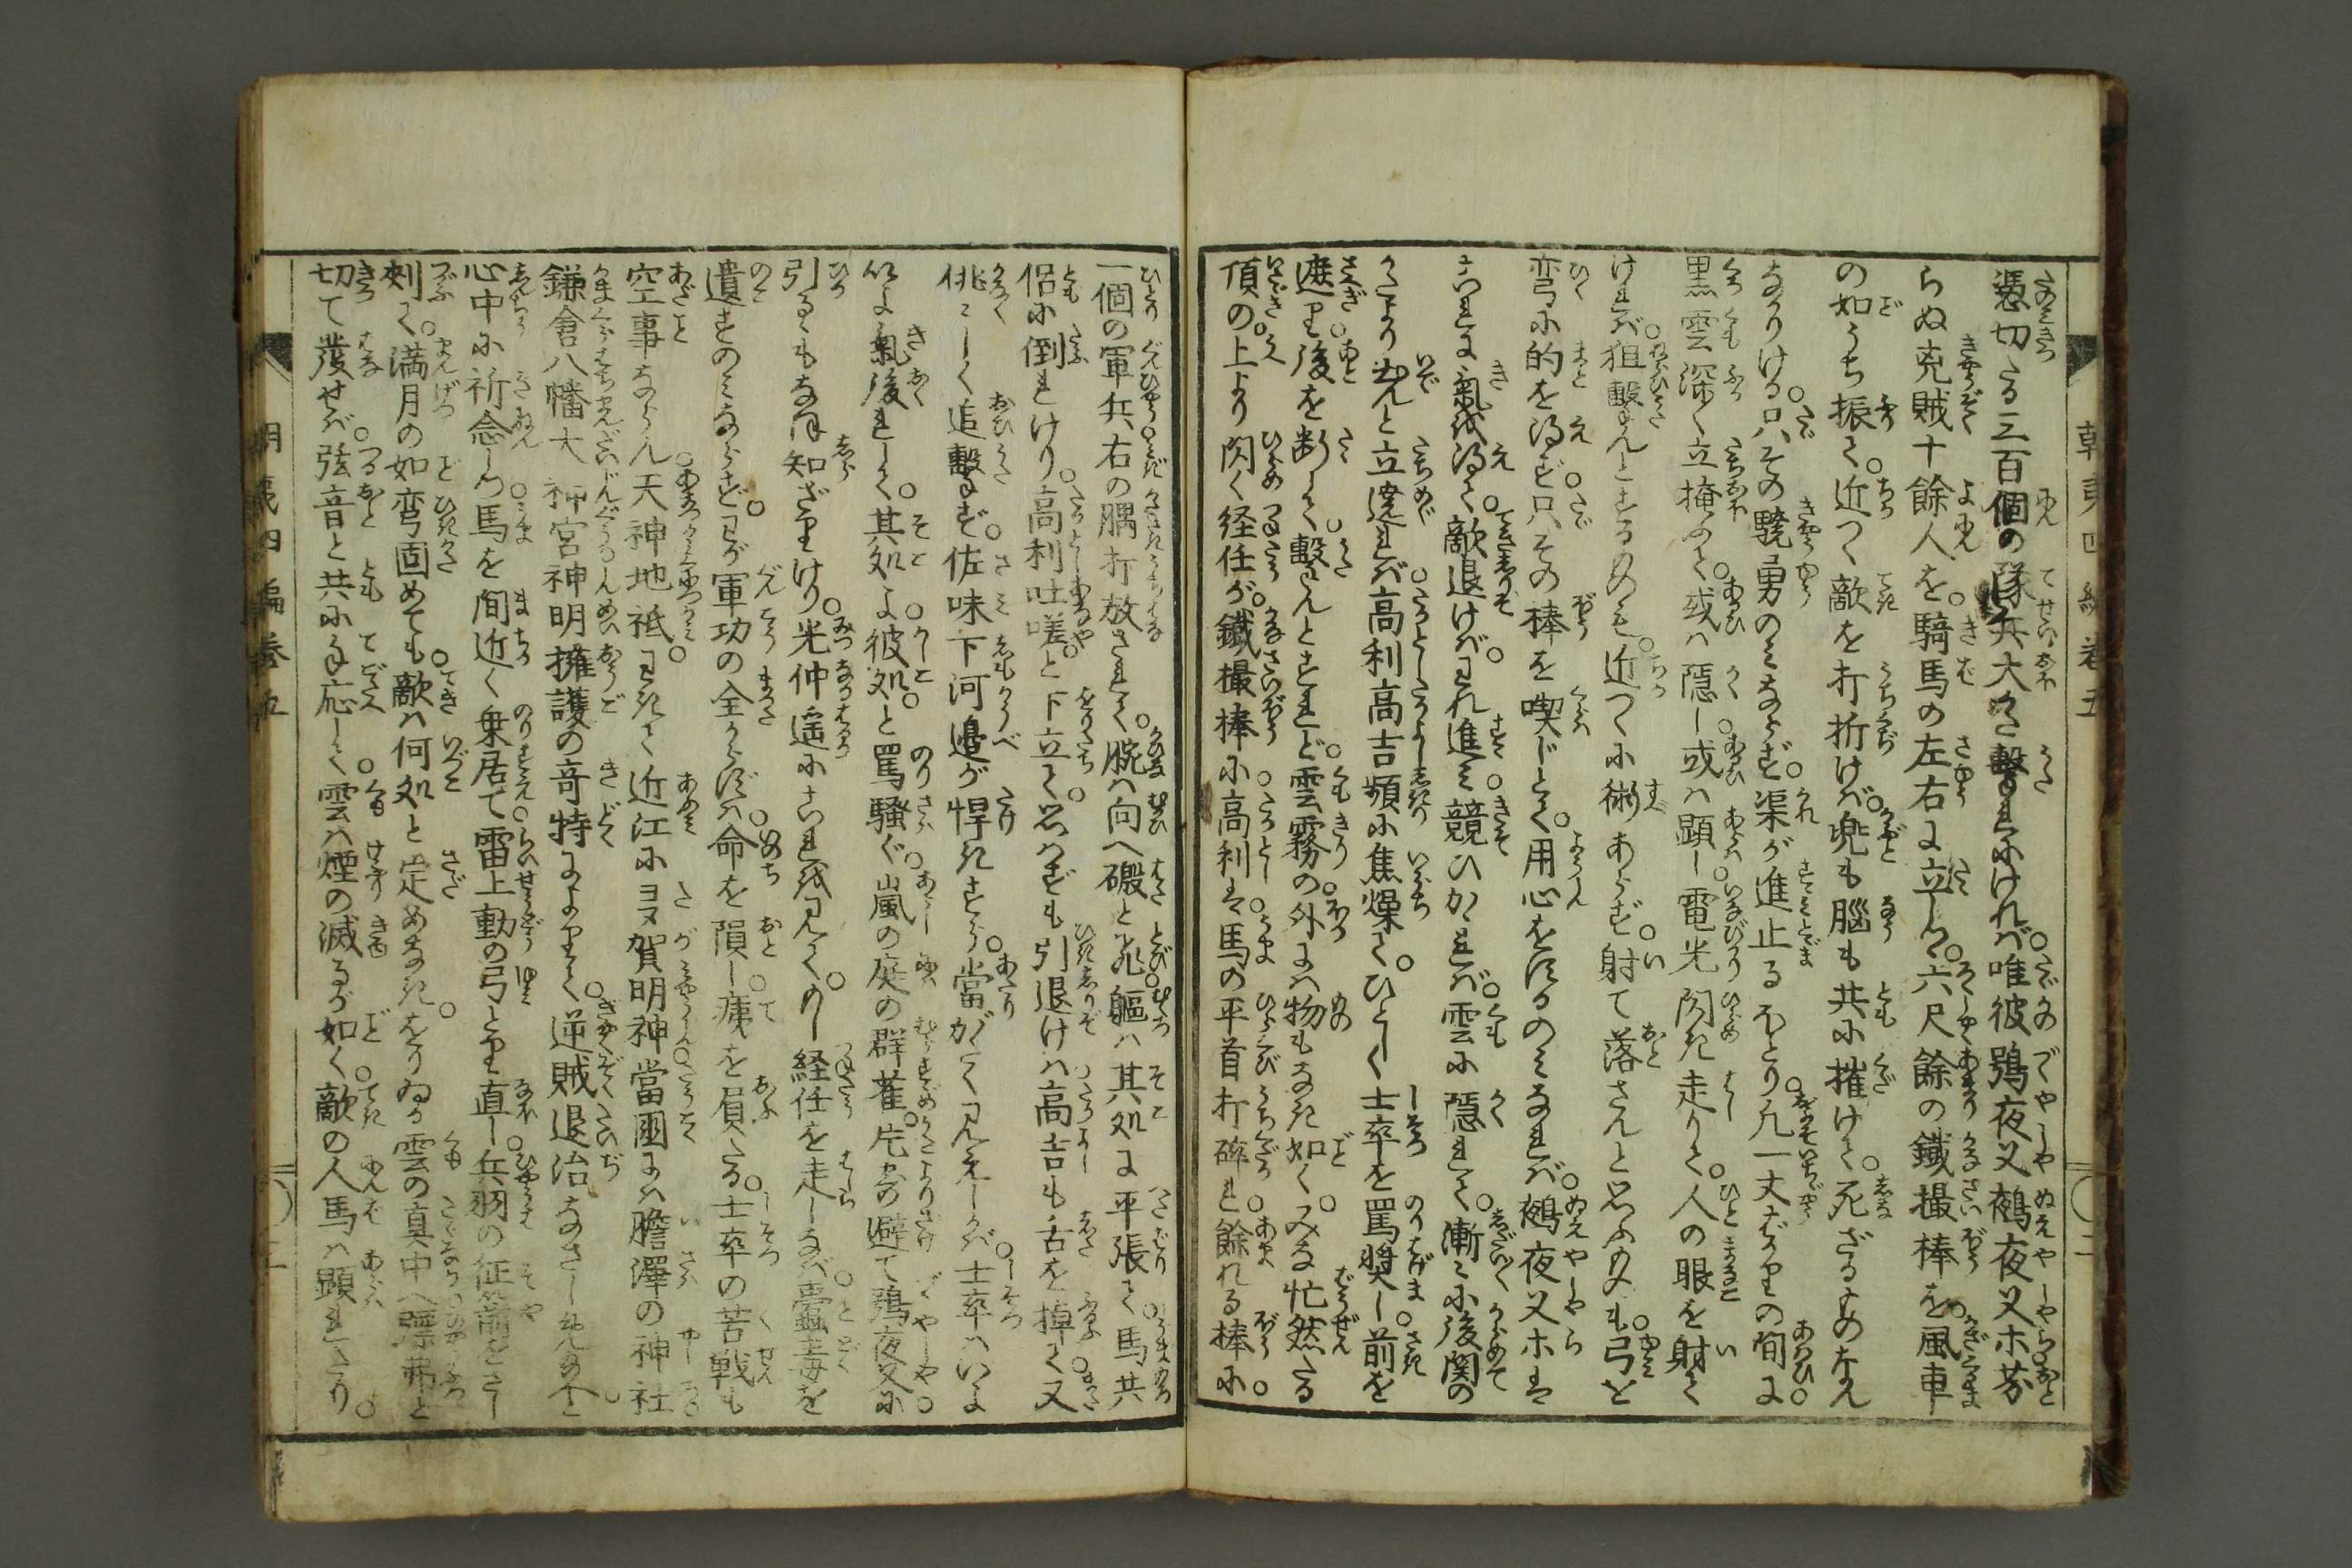 朝夷四編卷五
憑切たる三百個の隊兵大かた撃れにけれバ。唯彼鵶夜叉鵺夜叉ホ労
らぬ兇賊十餘人を。騎馬の左右に立しつ。六尺餘の鐵撮棒を。風車
の如うち振て。近つく敵を打折けバ。兜も脳も共に摧けて。死ざるものなん
なかりける。只その驍勇のミならず。渠が進止るほとり。凡一丈ばかりの間に。
黒雲深く立掩ふて。或ハ隠し。或ハ顕し。電光閃き走りて。人の眼を射て
けれバ。狙撃んとするものも。近つくに術あらず。射て落さんと思ふものも。弓を
弯に的を得ず。只その棒を喫じとて。用心をするのミなれバ。鵺夜叉ホハ
これに氣を得て。敵退けバ。われ進ミ。競ひかゝれバ。雲に隠れて。漸々に後関の
かたより出んと立遶れバ。高利高吉頻に焦燥て。ひとしく士卒を罵奨し。前を
遮り後を断して。撃んとすれど。雲霧の外にハ物もなき如く。みな忙然たる
頂の。上より閃く経任が。鐵撮棒に高利ハ。馬の平首打碎れ。餘れる棒に。
一個の軍兵右の腢打放されて。腕ハ向へ磤と飛。軀ハ其処に平張て。馬共
侶に倒れけり。高利吐嗟と下立て。思ハずも引退けハ。高吉も舌を掉て。又
挑しく追撃ず。佐味下河邉が悍きすら。當がたく見えしかバ。士卒ハいよ
以よ氣後れして。其処よ。彼処。と罵騒ぐ。嵐の庭の群雀。片より避て。鵶夜叉に
引るゝもなほ知ざりけり。光仲遥にこれを見て。のし経任を走しなバ。蠱毒を
遺すのミならず。わが軍功の全からずハ。命を隕し。痍を負たる。士卒の苦戦も
空事ならん。天神地祇。わきて近江にヨヌ賀明神。當國にハ膽澤の神社。
鎌倉八幡大神宮神明擁護の竒特によりて。逆賊退治なさしめ給へ。と
心中に祈念しつ。馬を間近く乗居て。雷上動の弓とり直し。兵羽の征箭をさし
刺て。満月の如弯固めても。敵ハ何処と定めなき。をりゐる雲の真中へ。瓢弗と
切て發せバ。弦音と共に手応して。雲ハ煙の滅るが如く。敵の人馬ハ顕れたり。
朝夷四編卷五